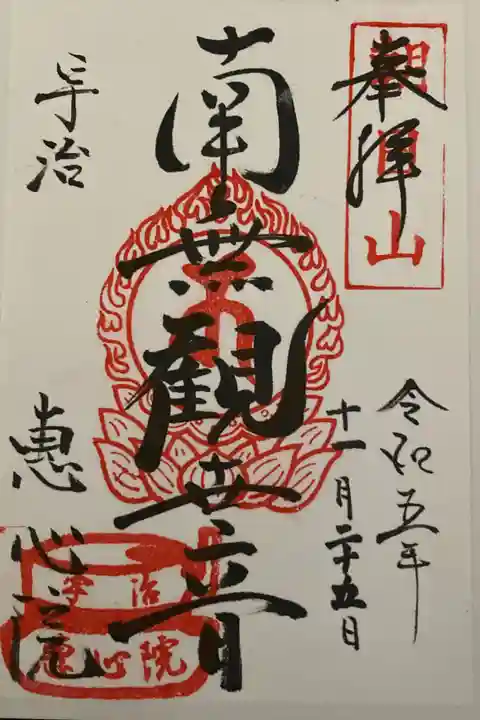 奉拝
朝日山
令和五年
十一月二十五日
南無觀世音
宇治
恵心院
宇治
恵心院